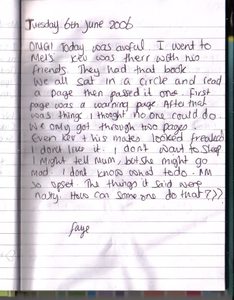 Tuesday 6th June 2006
OMG! Today was awful. I went to
Mel's Kev was therr with his
friends. They had that book
We all sat in a circle and read
a page then passed it one. First
page was a warning page After that
was things I thought no one could do.
We only got through two pages.
Even Kev & his mates looked freaked
I dont like it. I dont want to sleep
I might tell mum, but she might go
mad. I dont know what to do. Am
so upset. The things it said were
nasty. How can some one do that???
Faye